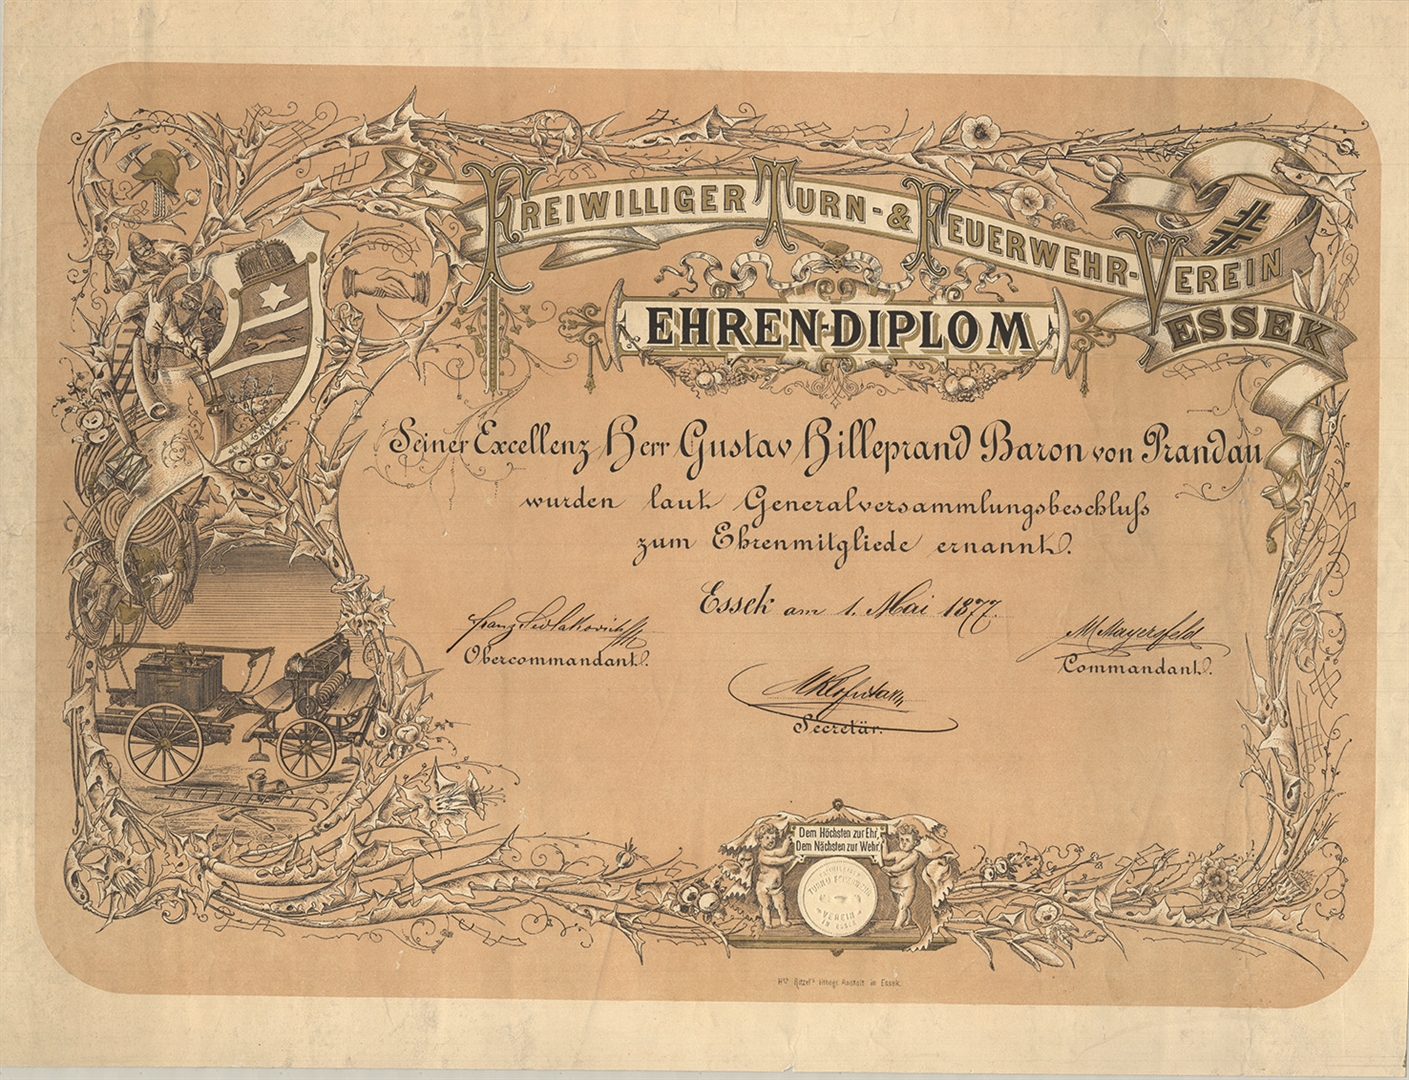 FREIWILLIGER TURN- & FEUERWEHR-VEREIN
ESSEK
EHREN-DIPLOM
Seiner Excellenz Herr Gustav Hilleprand Baron von Prandau
wurden laut Generalversammlungsbeschluß
zum Ehrenmitgliede ernannt.
Essek am 1. Mai 1877.
Franz Sedlakovich
Obercommandant.
M Mayersfeld
Commandant.
Secretär.
Dem Höchsten zur Ehr,
Dem Nächsten zur Wehr.
TURN-U. FEUERWEHR
VEREIN
IN ESSEK
Anstalt in Essek.